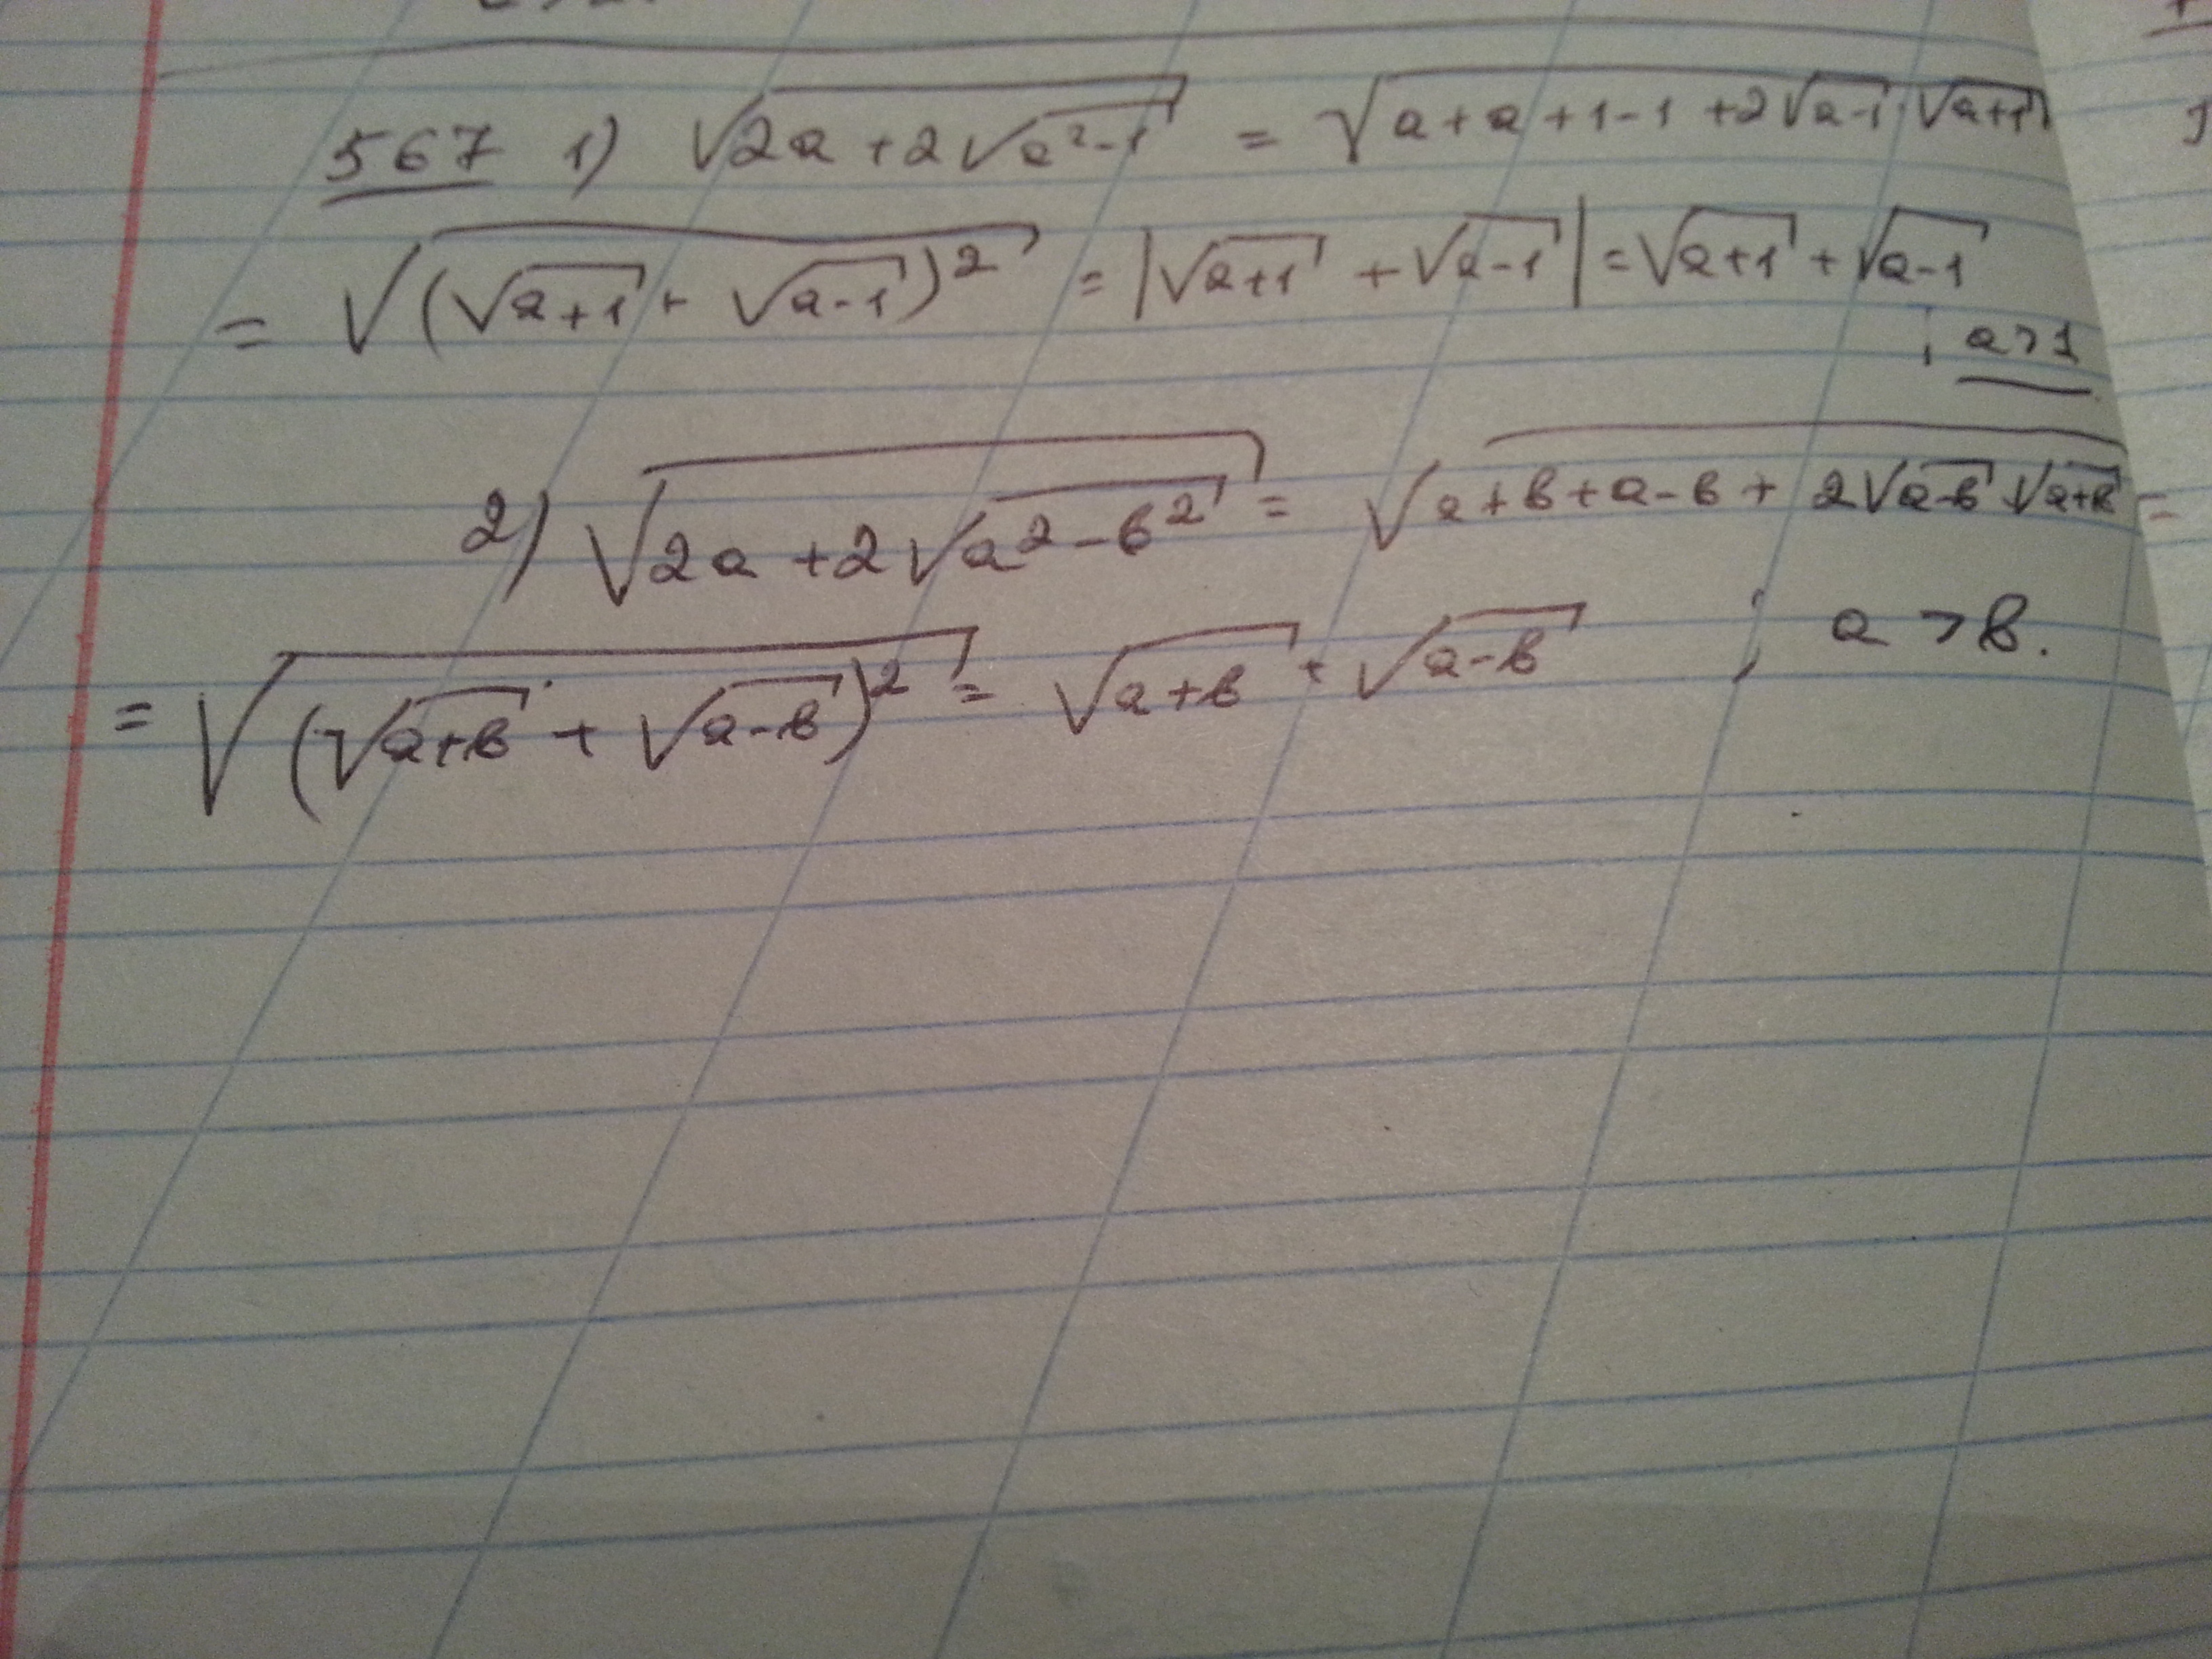 567 1) √(2a + 2√(a²-1)) = √(a + a + 1 - 1 + 2√(a-1)·√(a+1))
= √((√(a+1) + √(a-1))²) = |√(a+1) + √(a-1)| = √(a+1) + √(a-1)
; a>1
2) √(2a + 2√(a²-b²)) = √(a+b+a-b + 2√(a-b)·√(a+b)) =
= √((√(a+b) + √(a-b))²) = √(a+b) + √(a-b) ; a > b.